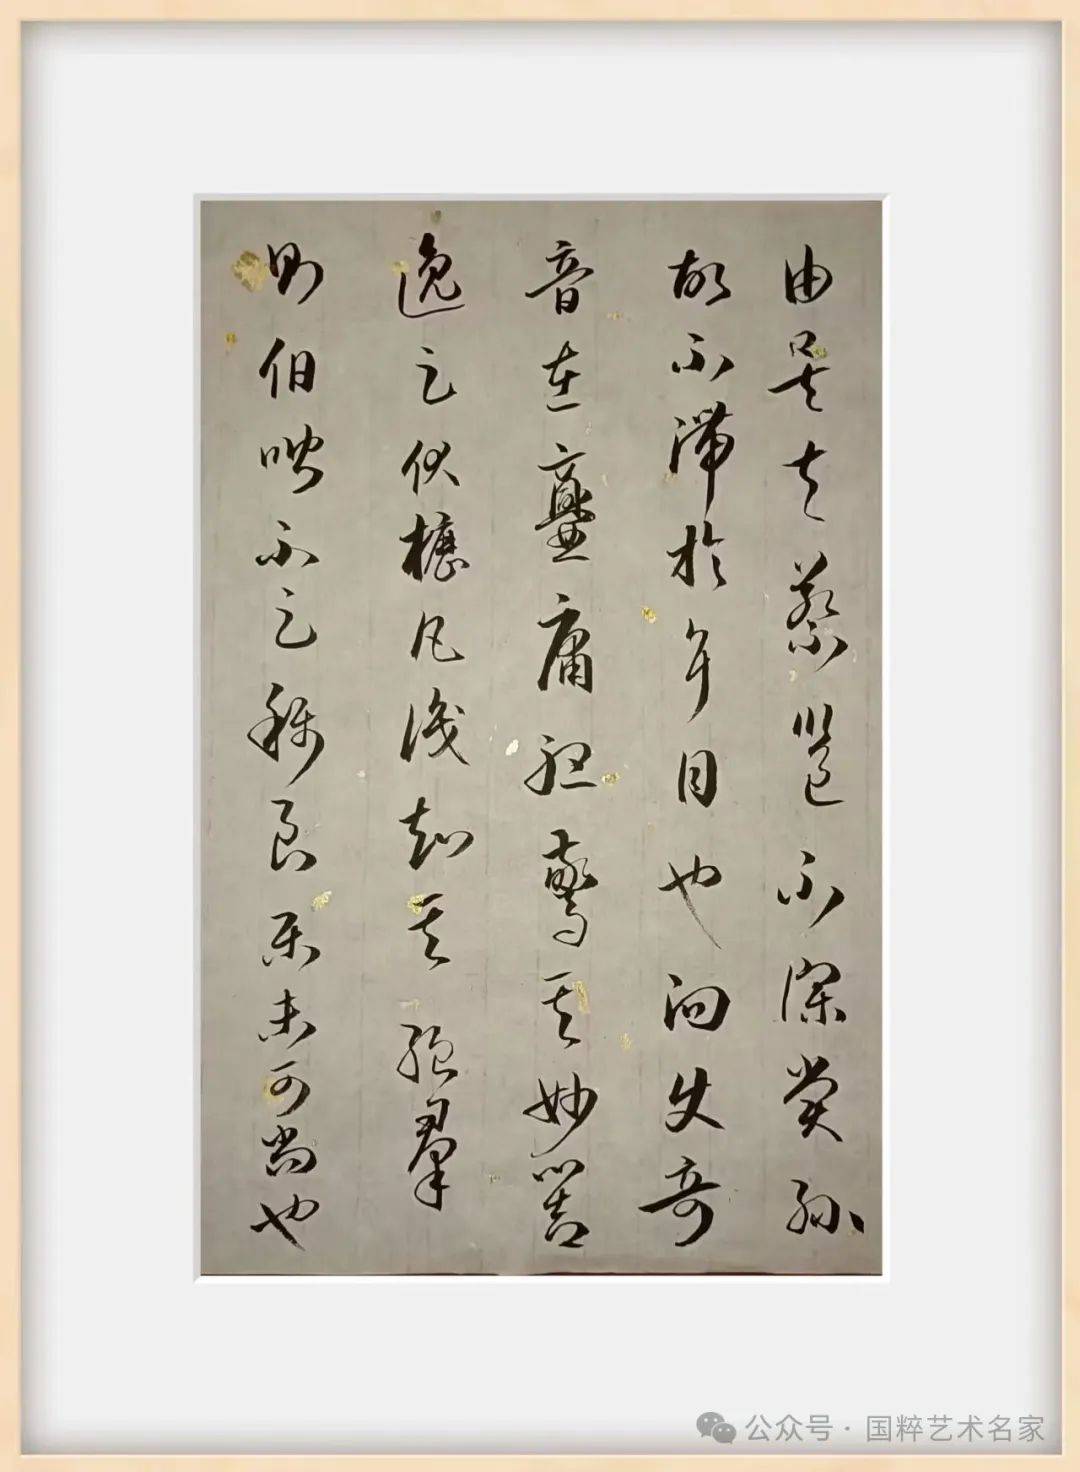 由是夫蔡邕不謬賞孫
故不滯於耳目也向使奇
音在爨庸聽驚其妙響
逸足伏櫪凡識知其絕羣
則伯喈不足稱良樂未可尚也
公众号·国粹艺术名家